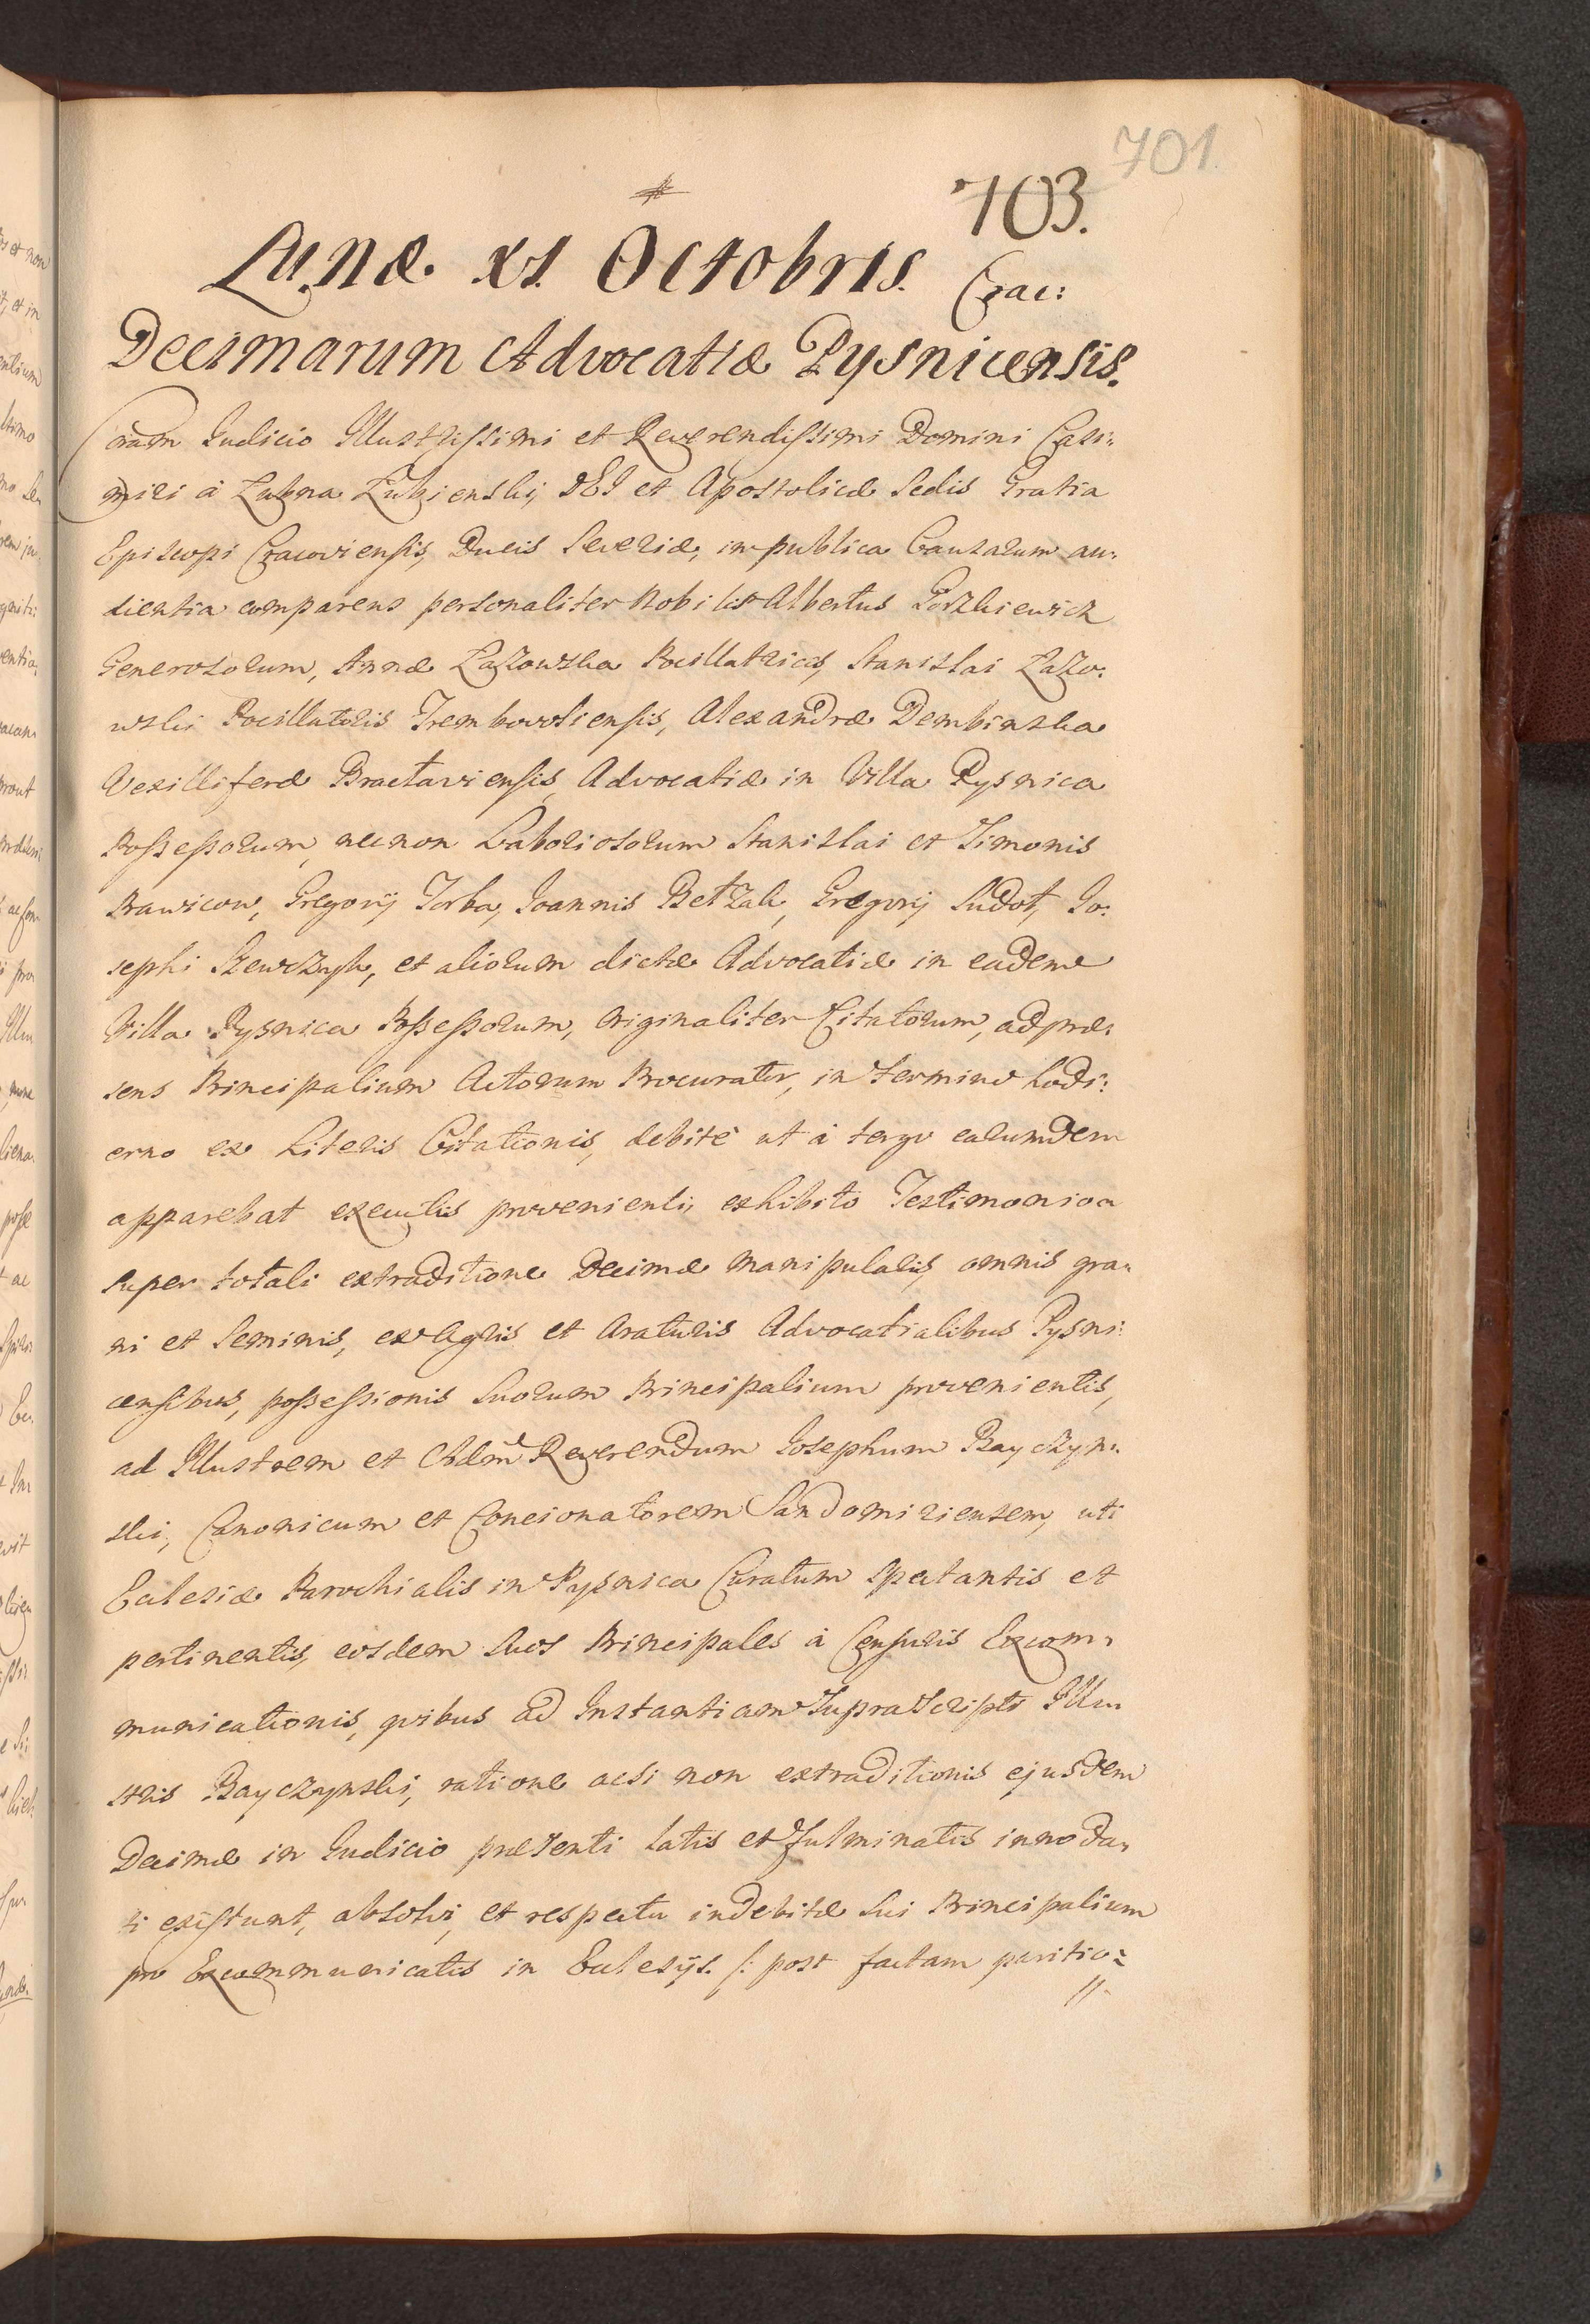 701.
703.
Lunæ. XI. Octobris. Crac:
Decimarum Advocatiæ Pysnicensis.
Coram Judicio Illustrissimi et Reverendissimi Domini Casi:
miri à Łubna Łubienski, DEI et Apostolicæ Sedis Gratia
Episcopi Cracoviensis, Ducis Severiæ, in publica Causarum au:
dientia comparens personaliter Nobilis Albertus Gorzkiewicz
Generosorum, Annæ Łazowska Pocillatricis, Stanislai Łazo:
wski Pocillatoris Trembowliensis, Alexandræ Dembinska
Vexilliferæ Bractaviensis, Advocatiæ in Villa Pysnica
Possessorum, necnon Laboriosorum Stanislai et Simonis
Brawicow, Gregorij Torba, Joannis Betzak, Gregorij Sudoł, Jo:
sephi Szewczyk, et aliorum dictæ Advocatiæ in eadem
Villa Pysnica Possessorum, Originaliter Citatorum, ad præ:
sens Principalium Actorum Procurator, in termino hodi:
erno ex Literis Citationis, debitè ut à tergo earumdem
apparebat executis provenienti, exhibito Testimonio
super totali extraditione Decimæ Manipularis, omnis gra:
ni et Seminis, ex Agris et Araturis Advocatialibus Pysni:
censibus, possessionis Suorum Principalium provenientis,
ad Illustrem et Adm̃ Reverendum Josephum Bayczyn:
ski, Canonicum et Concionatorem Sandomiriensem, uti
Eclesiæ Parochialis in Pysnica Curatum spectantis et
pertinentis, eosdem Suos Principales à Censuris Excom:
municationis, quibus ad Instantiam Suprascripti Illu
stris Bayczynski, ratione acsi non extraditionis ejusdem
Decimæ in Judicio præsenti latis et fulminatis innoda:
ti existunt, absolvi, et respectu indebitæ Sui Principalium
pro Excommunicatis in Eclesijs. /: post factam paritio: